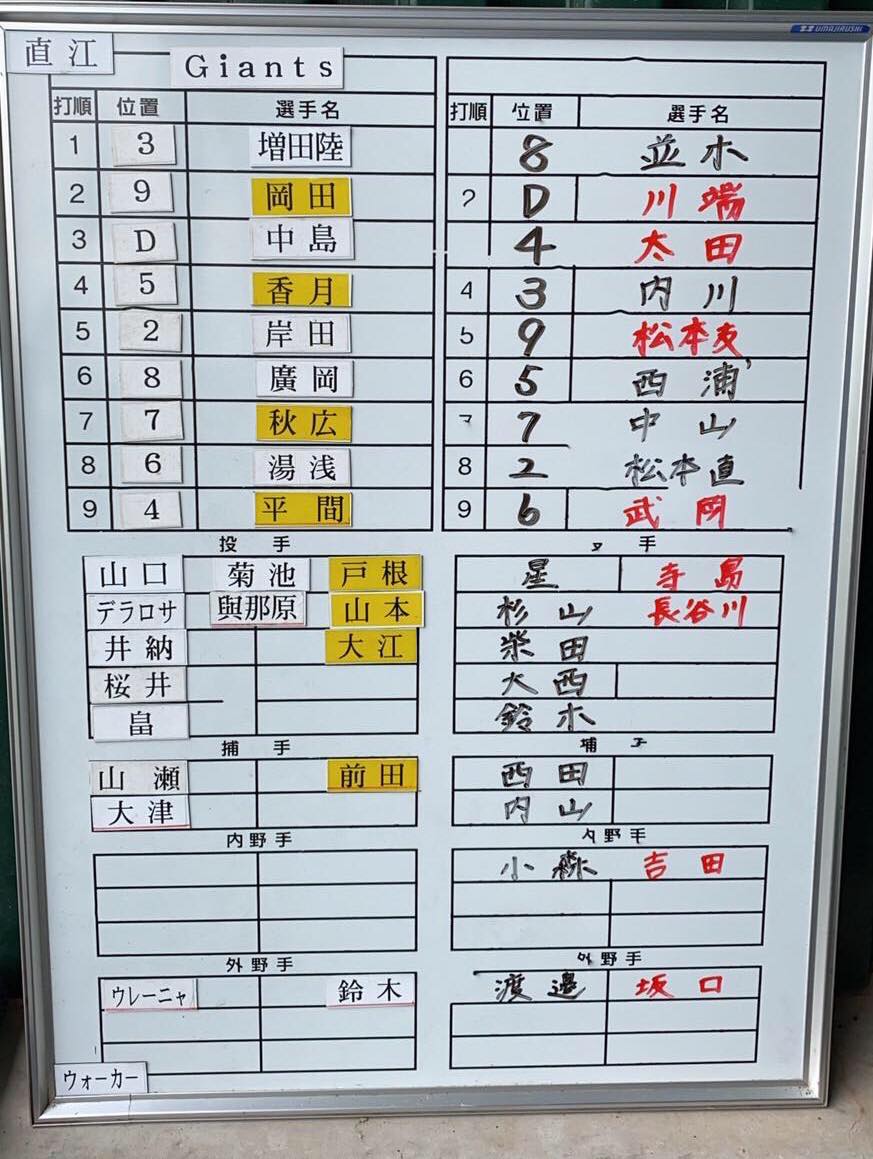 UMAJIRUSHI
直江
Giants
打順 位置 選手名
1 3 増田陸
2 9 岡田
3 D 中島
4 5 香月
5 2 岸田
6 8 廣岡
7 7 秋広
8 6 湯浅
9 4 平間
投手
山口 菊池 戸根
デラロサ 與那原 山本
井納 大江
桜井
畠
捕手
山瀬 前田
大津
内野手
外野手
ウレーニャ 鈴木
ウォーカー
打順 位置 選手名
8 並木
2 D 川端
4 太田
4 3 内川
5 9 松本友
6 5 西浦
7 7 中山
8 2 松本直
9 6 武岡
手
星 寺島
杉山 長谷川
柴田
大西
鈴木
捕
西田
内山
内野手
小森 吉田
外野手
渡邉 坂口